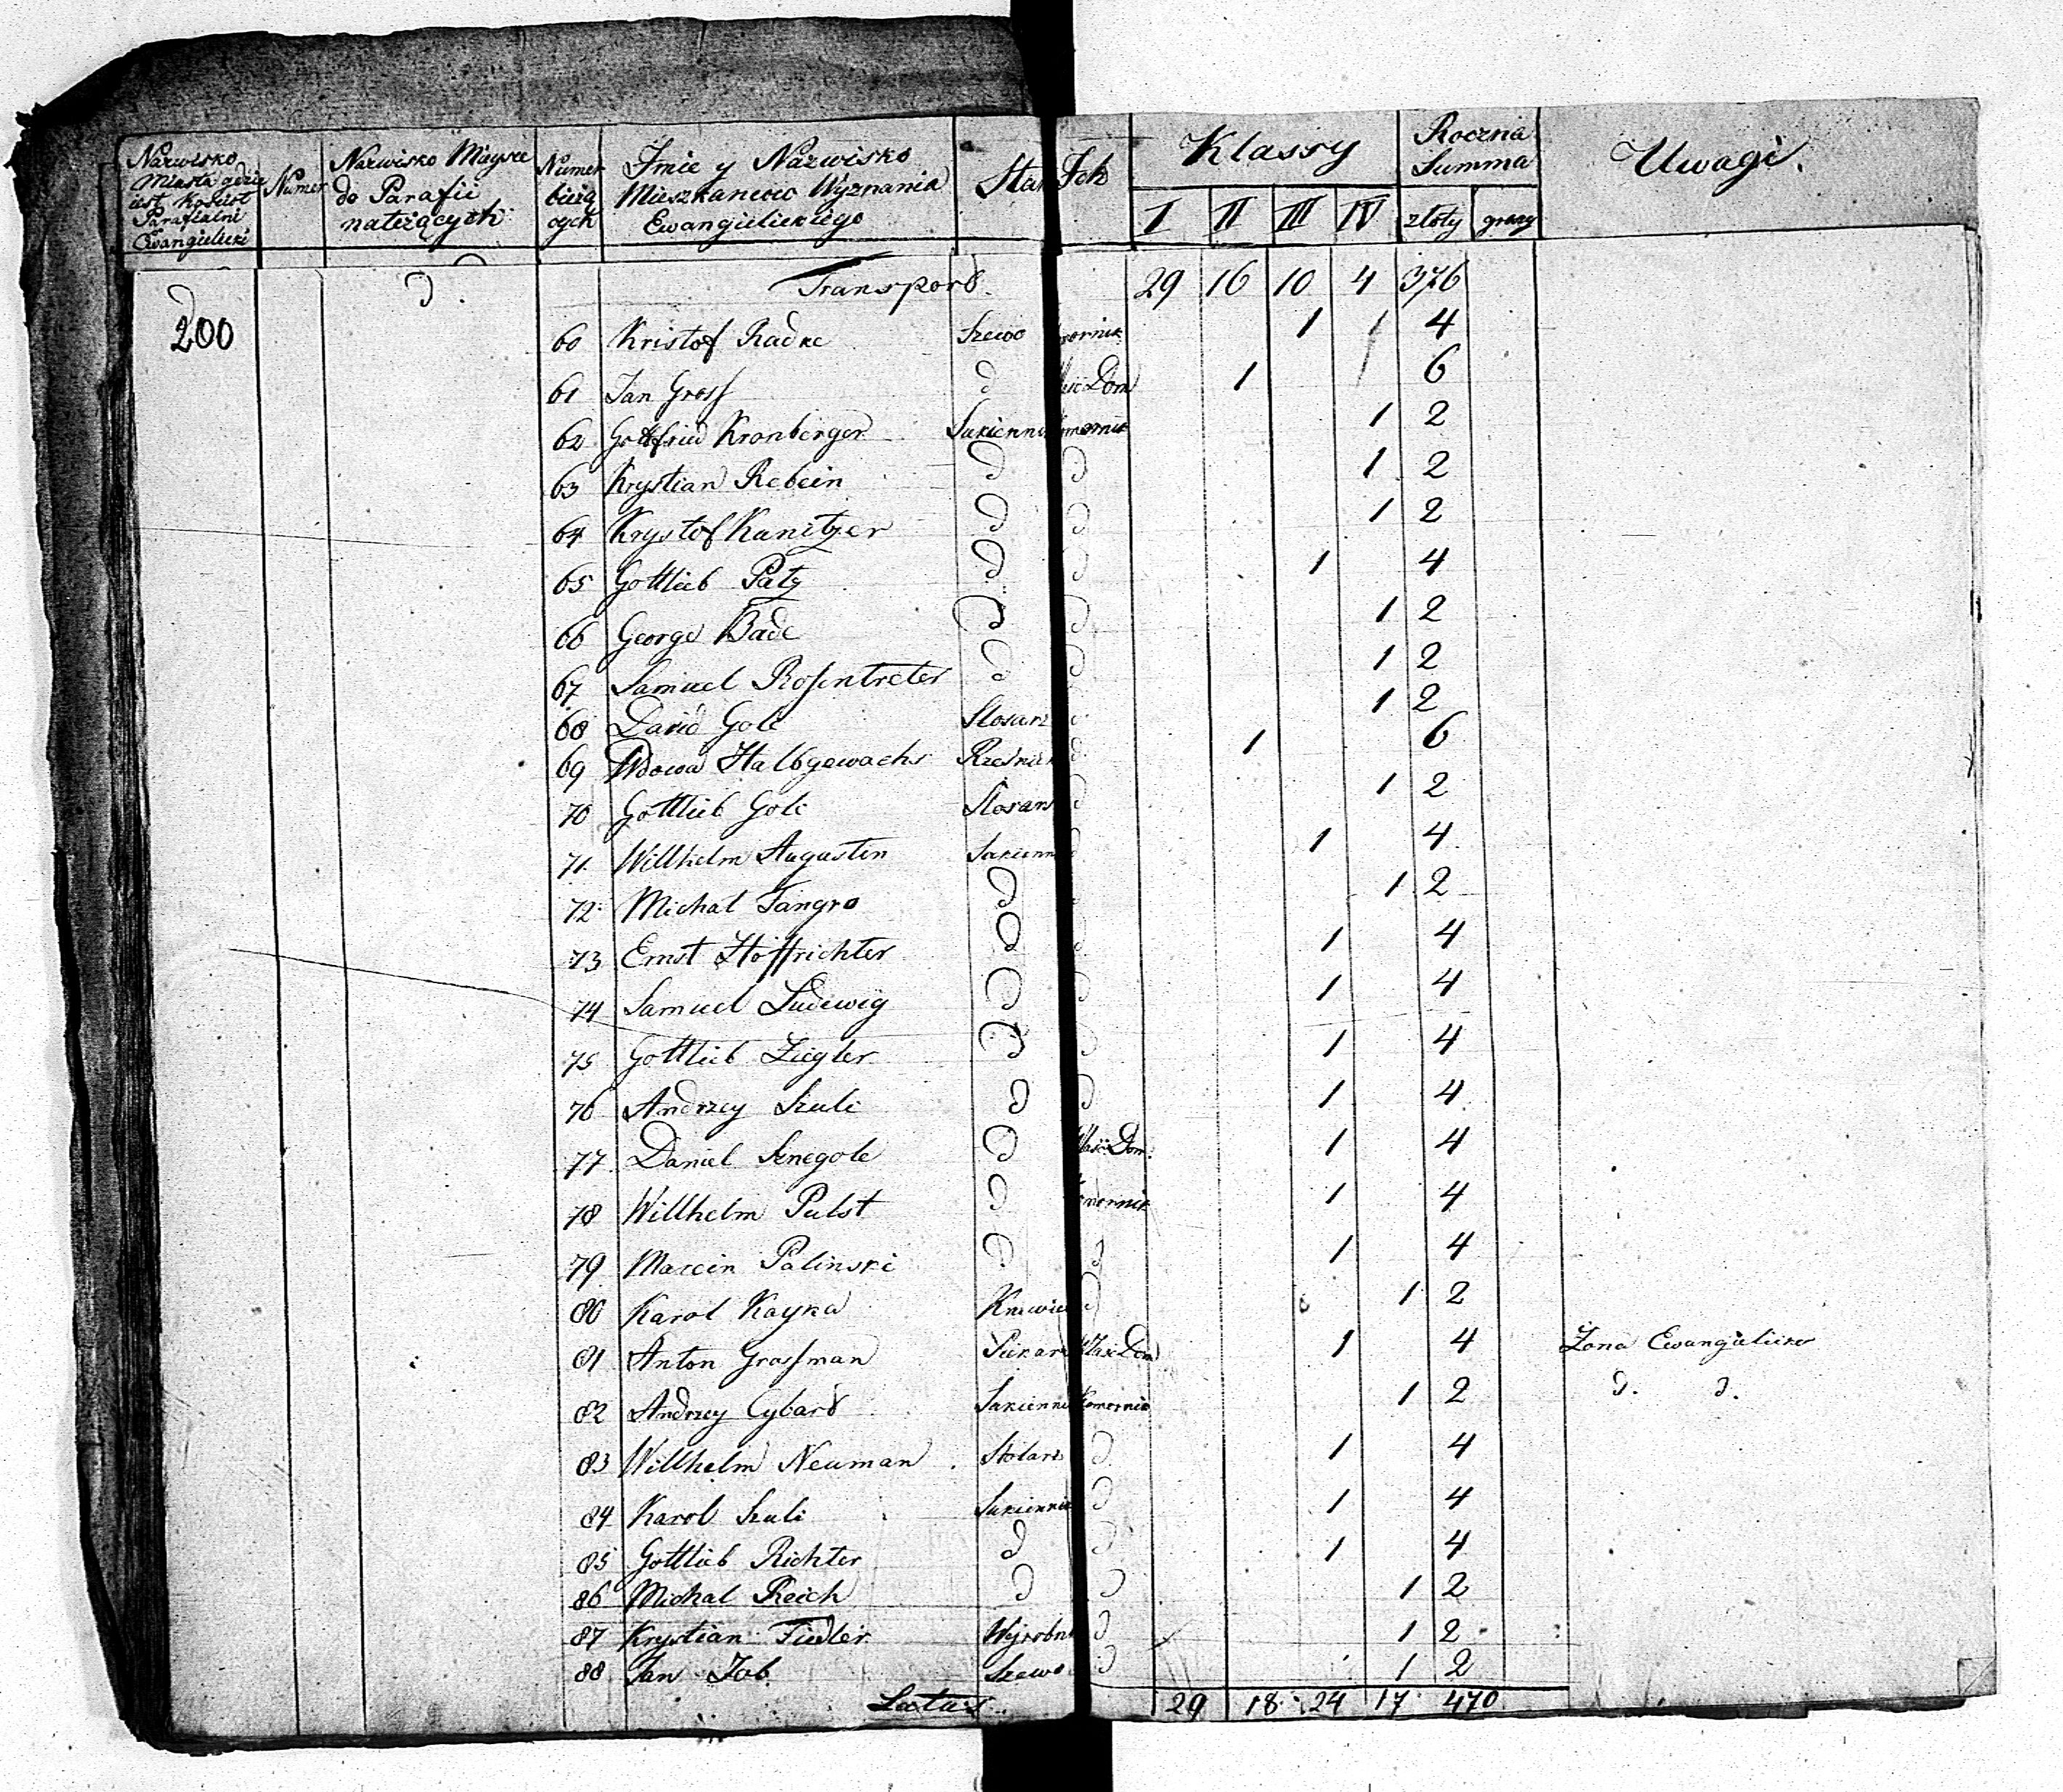 Nazwisko Miasta gdzie iest Kosciół Parafialni Ewangielicki Numer Nazwisko Mieysc do Parafii należących Numer bieżą cych Imie y Nazwisko Mieszkancow Wyznania Ewangielickiego Stan Ich Klassy Roczna Summa Uwagi.
I II III IV złoty groszy
d d. Transport. 29 16 10 4 376
200
60 Kristof Radke Szewc 1 4
61 Jan Gross d Dom 1 6
62 Gottfried Kronberger Sukienni 1 2
63 Krystian Rebein d d 1 2
64 Krystof Kanitzer d d 1 2
65 Gottlieb Paty d d 1 4
66 George Bade d d 1 2
67 Samuel Rosentreter d d 1 2
68 David Gole Slosarz d 1 2
69 Wdowa Halbgewachs Rzeźnik d 1 6
70 Gottlieb Gole Slosarz d 1 2
71. Willhelm Augustin Sukienn d 1 4
72. Michal Tangro d 1 2
73 Ernst Hoffrichter d d 1 4
74 Samuel Ludewig d d 1 4
75 Gottlieb Ziegler d d 1 4
76 Andrzey Szulc d d 1 4
77. Daniel d Dom. 1 4
78 Willhelm Pulst d 1 4
79 Marcin Palinski d d 1 4
80 Karol Kayka d 1 2
81 Anton Grossman Piekarz Dom 1 4 Żona Ewangielicka
82 Andrzey Cybard Sukienni Komornik 1 2 d. d.
83 Willhelm Neuman Stolarz d 1 4
84 Karol Szulc Sukiennik d 1 4
85 Gottlieb Richter d d 1 4
86 Michal Reich d d 1 2
87 Krystian Fiedler Wyrobni d 1 2
88 Jan Job Szewc d 1 2
Latus. 29 18 24 17 470